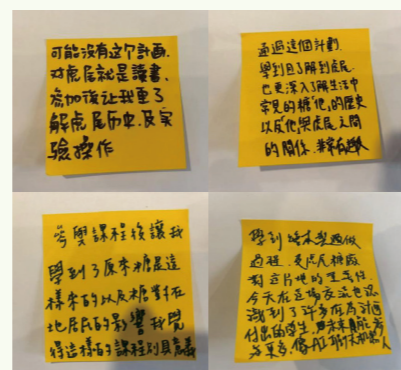 可能沒有这个計画,
对虎尾就是讀書、
參加後让我更了
解虎尾历史、及实
驗操作
通過這個計劃
學到且了解到虎尾
也更深入了解生活中
常見的糖,他的歷史
以及他與虎尾之間
的關係,
參與課程後讓我
學到了原來糖是這
樣來的以及糖對在
地居民的影響我覺
得這樣的課程別具意義
學到
過程,
對這片地的重要性,
今天在這場交流也認
識到了許多在為計画
付出的學生,